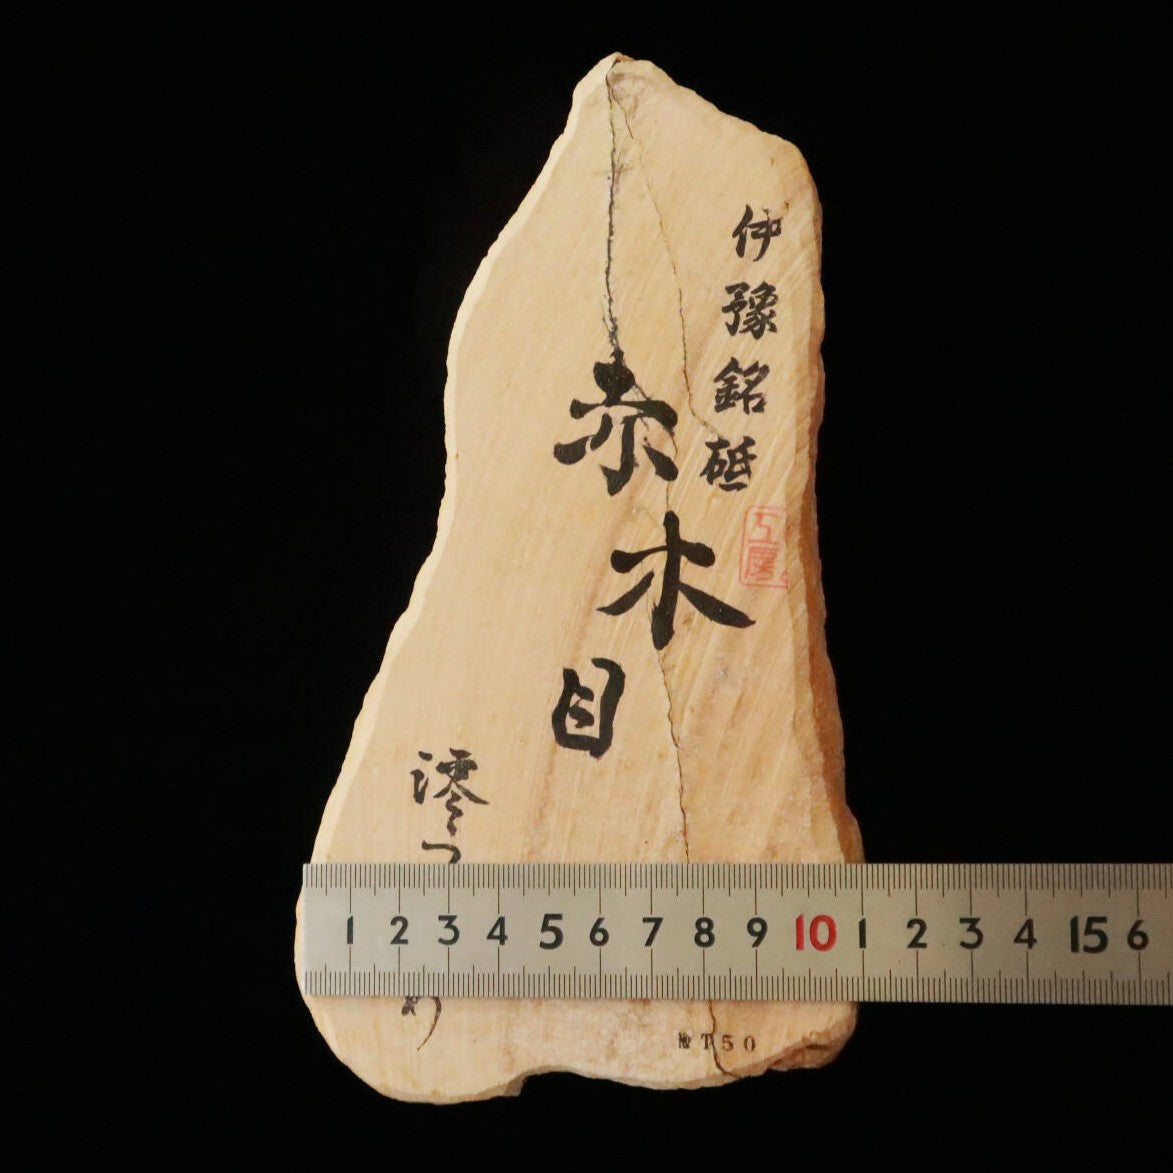 伊豫銘砥
赤木目
工房
澪つ
り
1 2 3 4 5 6 7 8 9 10 1 2 3 4 15 6
T50